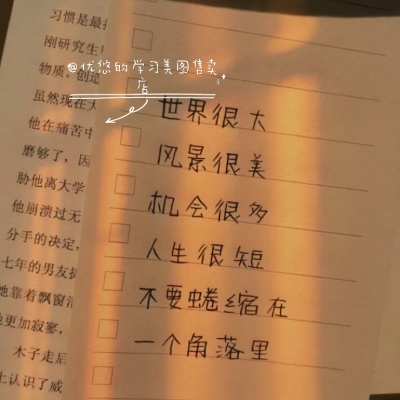 习惯是最
刚研究生
物质。创造
虽然现在大
他在痛苦中
磨够了，因
胁他离大学
他崩溃过无
分手的决定，
七年的男友
她靠着飘窗
更加寂寥，
木子走后
上认识了威
@优悠的学习美图售卖
店
世界很大
风景很美
机会很多
人生很短
不要蜷缩在
一个角落里